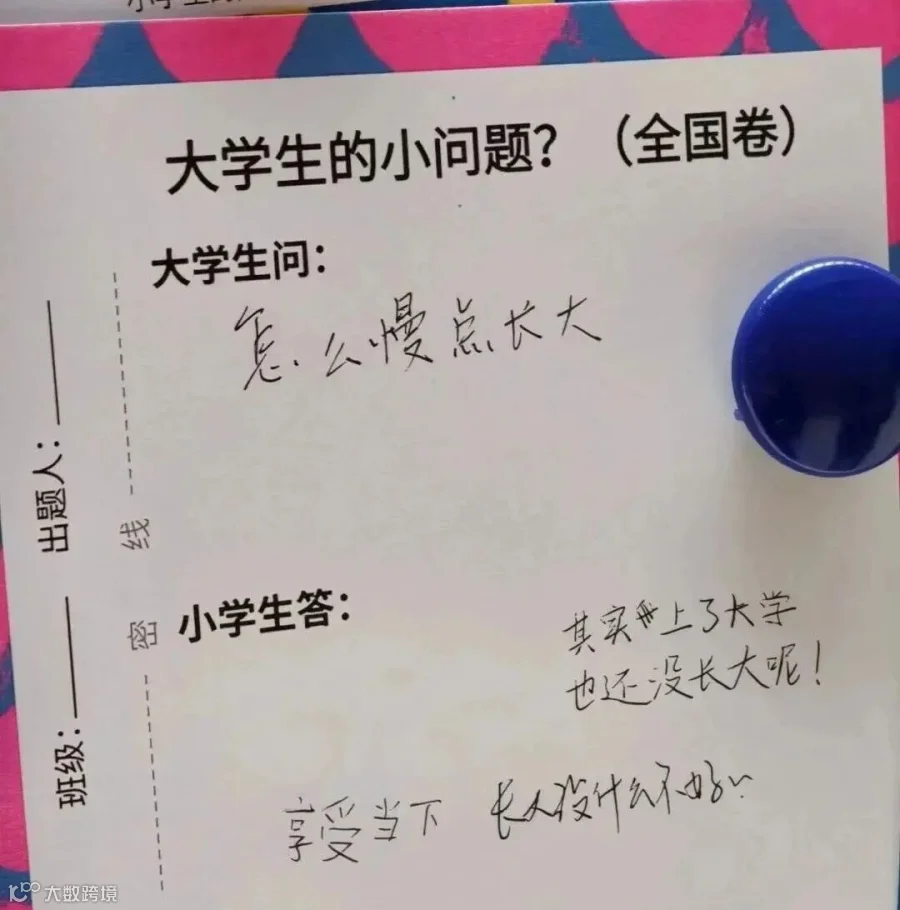 大学生的小问题？（全国卷）
大学生问：
怎么慢点长大
出题人：
线
密
班级：
小学生答：
其实上了大学
也还没长大呢！
享受当下
长大没什么不好
大数跨境